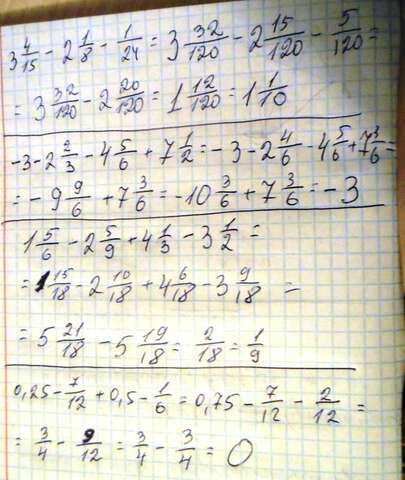 3 4/15 - 2 1/8 - 1/24 = 3 32/120 - 2 15/120 - 5/120 =
= 3 32/120 - 2 20/120 = 1 12/120 = 1 1/10
-3 - 2 2/3 - 4 5/6 + 7 1/2 = -3 - 2 4/6 - 4 5/6 + 7 3/6 =
= -9 9/6 + 7 3/6 = -10 3/6 + 7 3/6 = -3
1 5/6 - 2 5/9 + 4 1/3 - 3 1/2 =
= 1 15/18 - 2 10/18 + 4 6/18 - 3 9/18 =
= 5 21/18 - 5 19/18 = 2/18 = 1/9
0,25 - 7/12 + 0,5 - 1/6 = 0,75 - 7/12 - 2/12 =
= 3/4 - 9/12 = 3/4 - 3/4 = 0